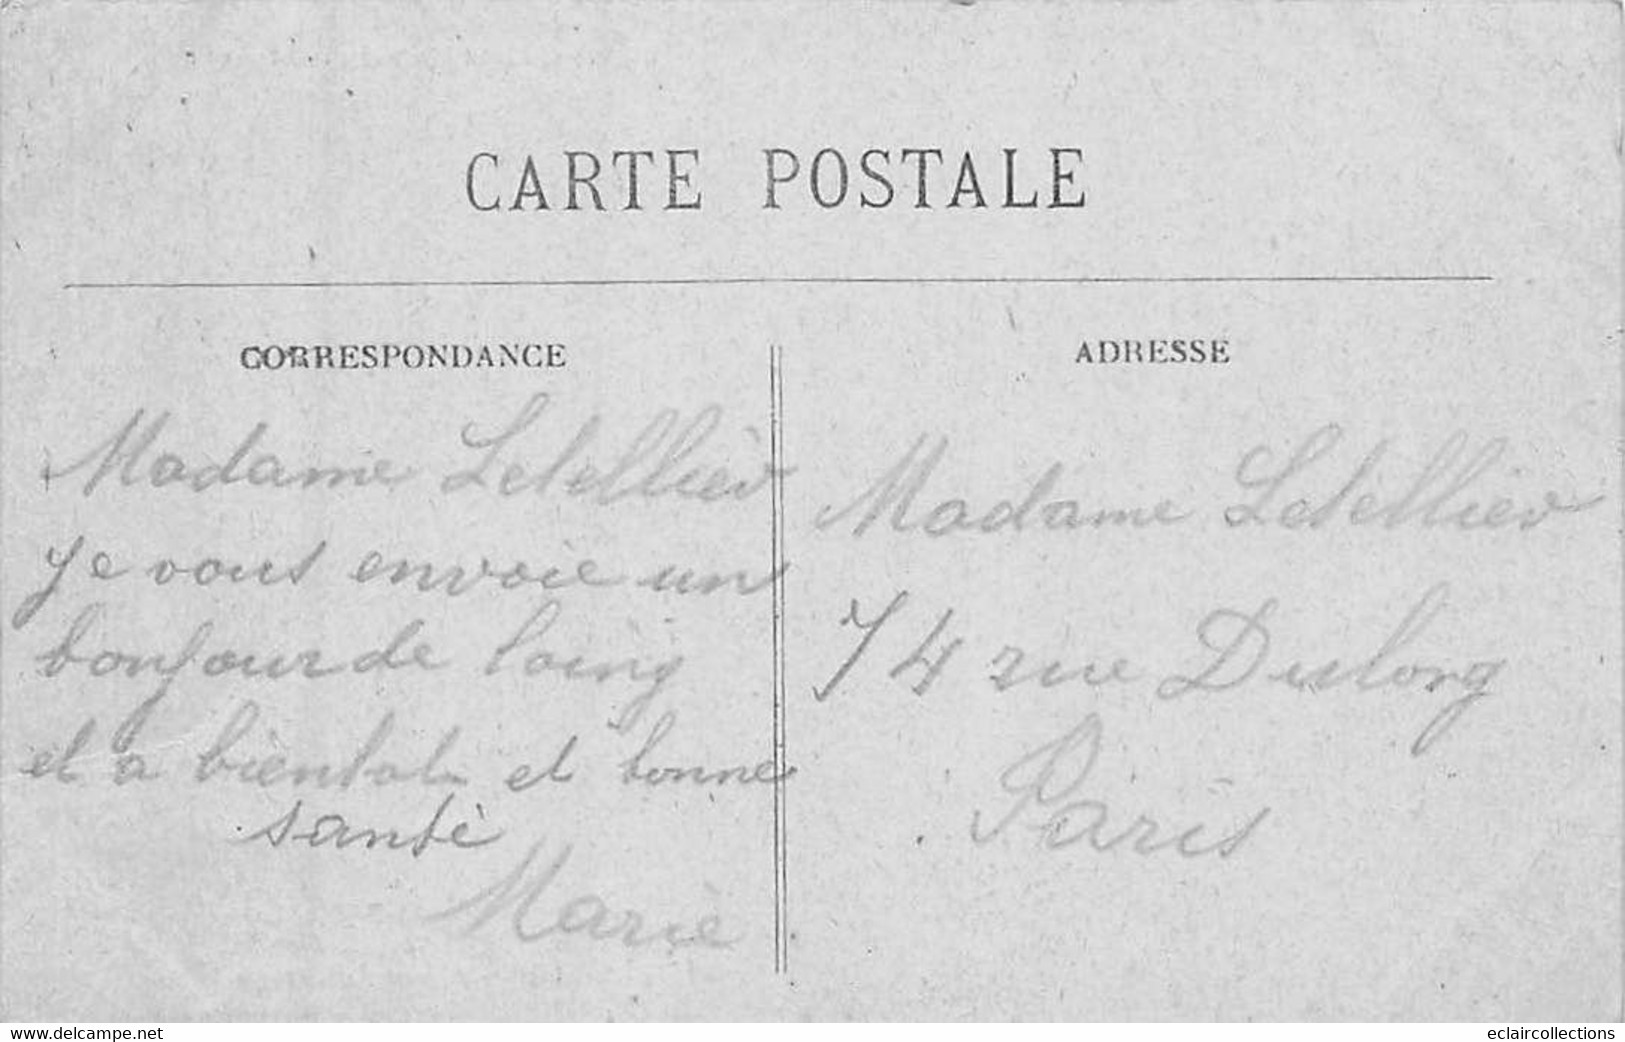 CARTE POSTALE
CORRESPONDANCE
Madame Letellier
je vous envoie un
bonjour de loing
et a bientot et bonne
santé
Marie
ADRESSE
Madame Letellier
74 rue Dulong
Paris
www.delcampe.net
eclaircollections